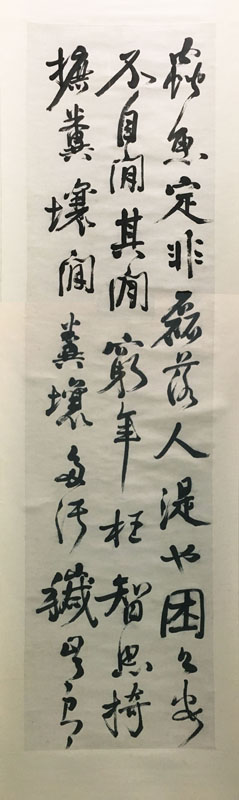 蟲魚定非磊落人湜也困公安
不自閒其閒窮年枉智思掎
摭糞壤閒糞壤多污穢